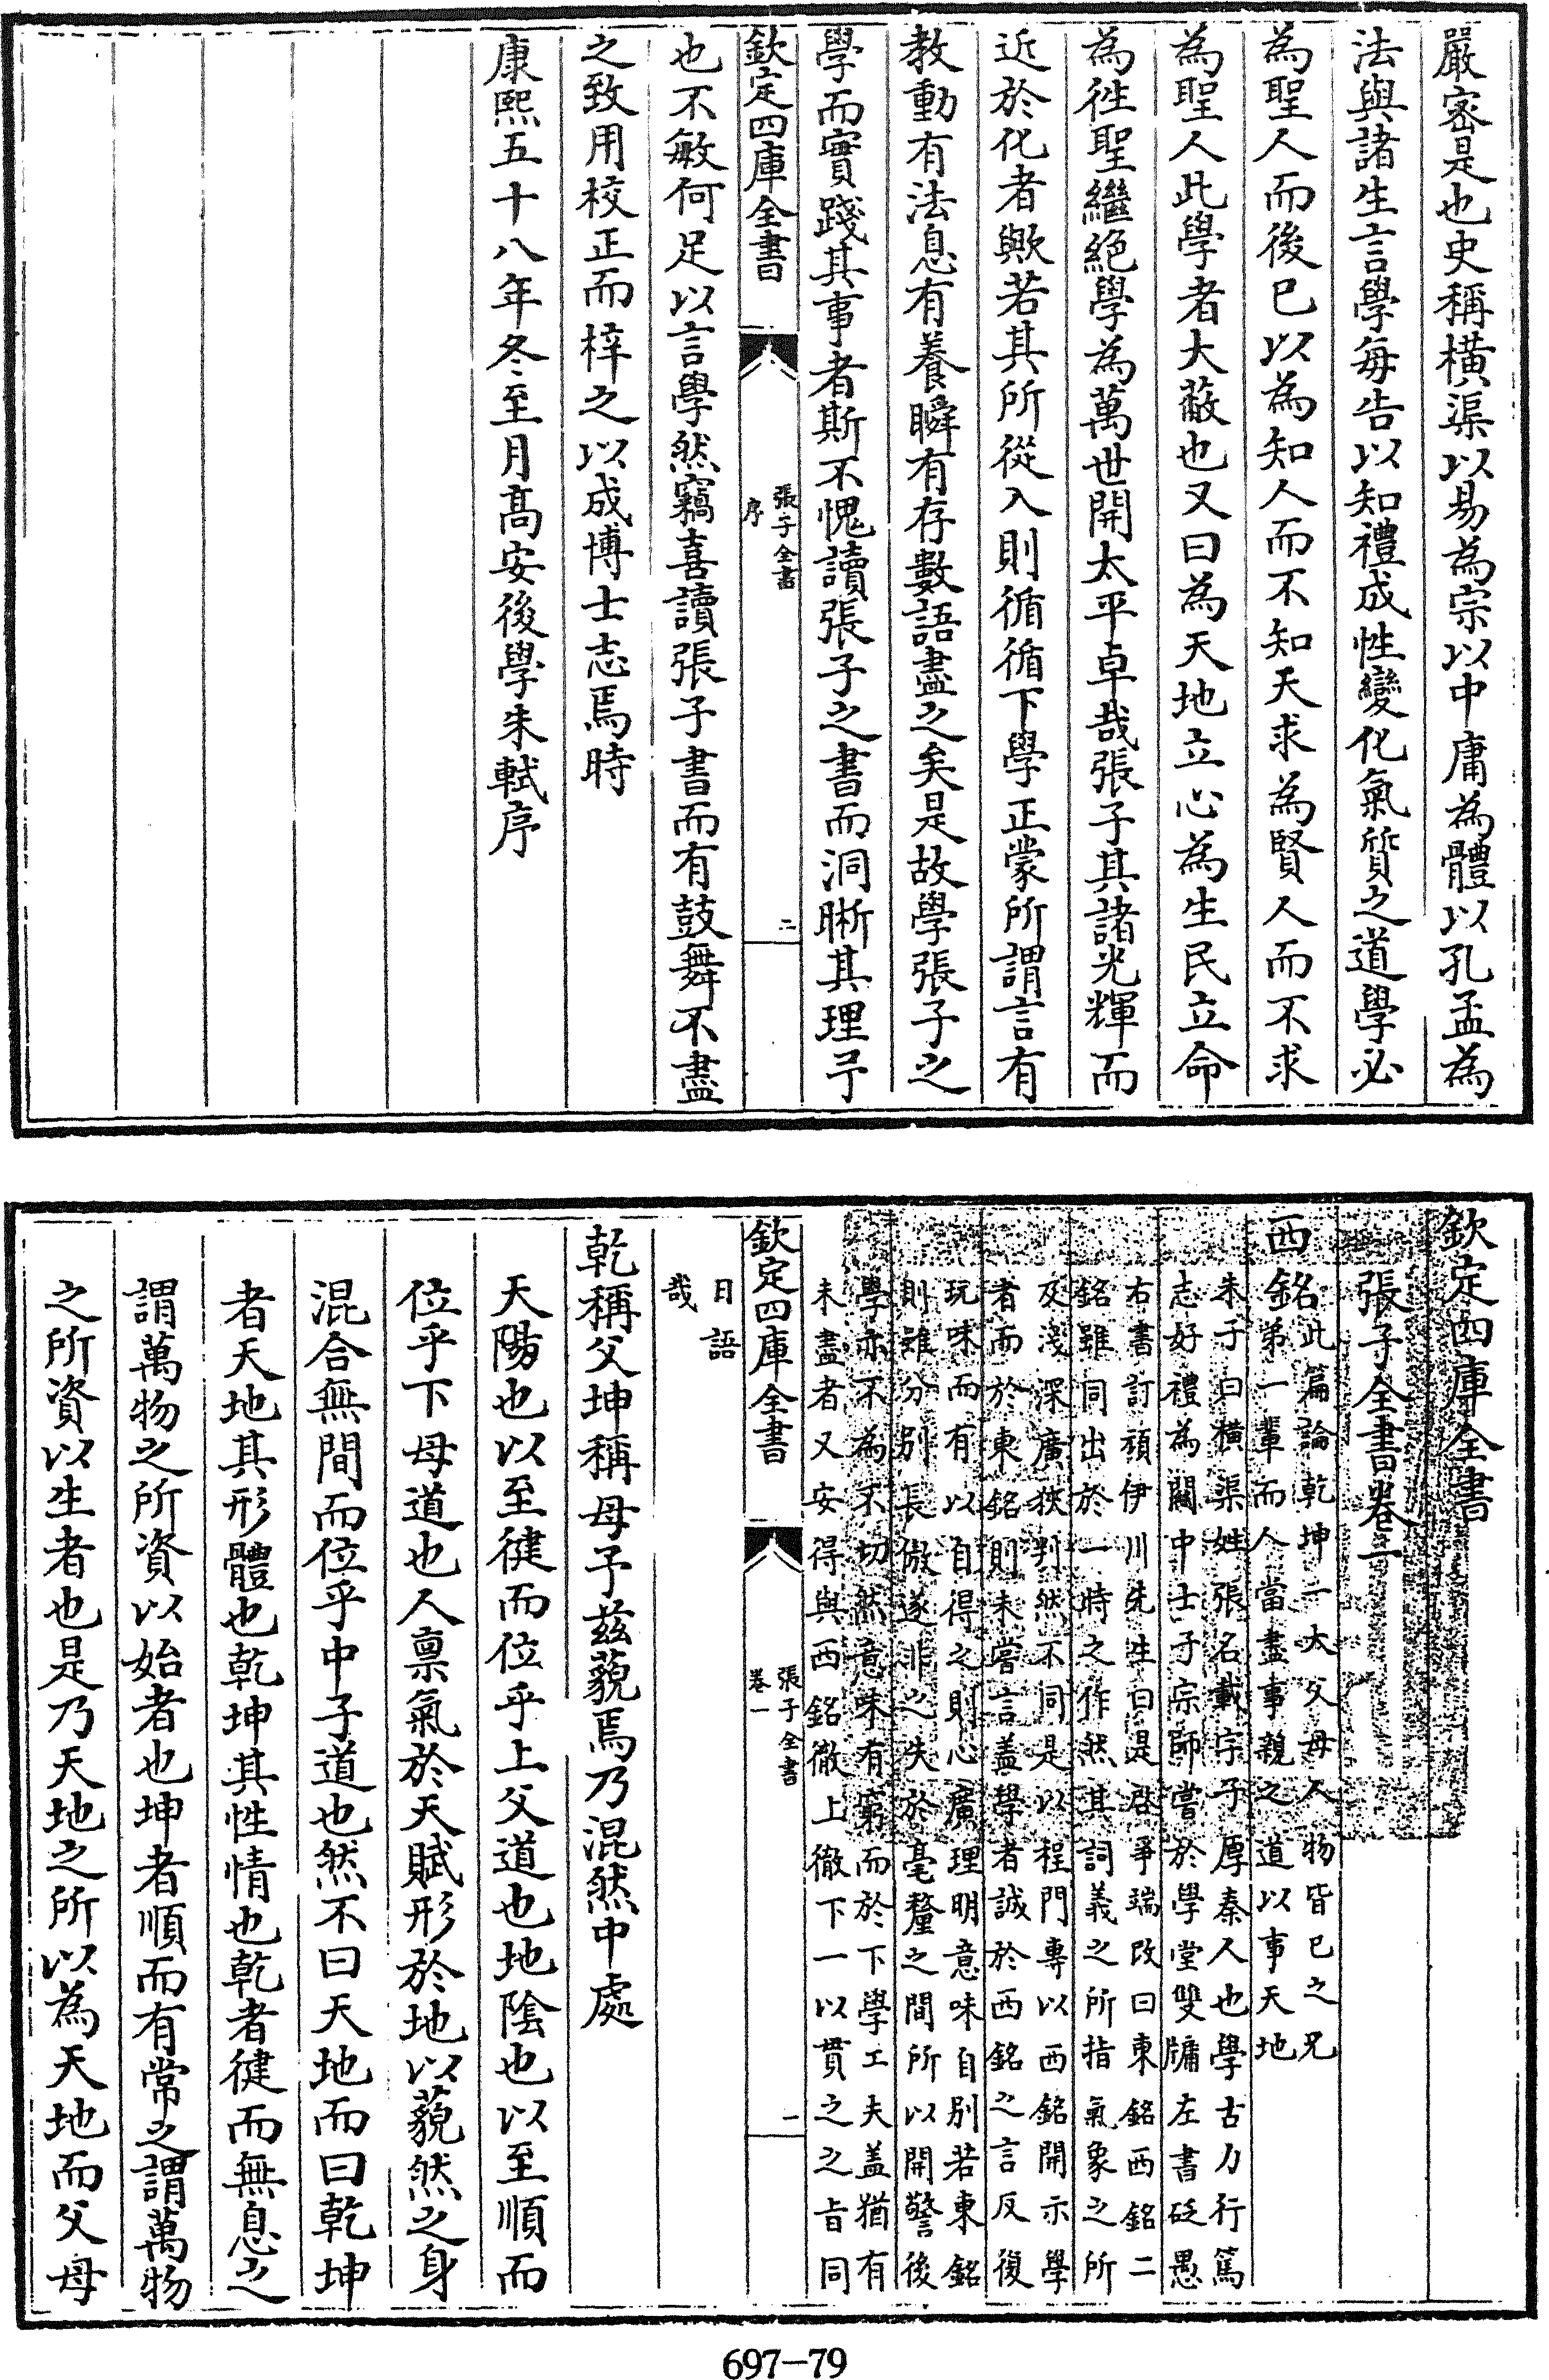 嚴宻是也史稱横渠以易為宗以中庸為體以孔孟為
法與諸生言學每告以知禮成性變化氣質之道學必
為聖人而後已以為知人而不知天求為賢人而不求
為聖人此學者大蔽也又曰為天地立心為生民立命
為徃聖繼絶學為萬世開太平卓哉張子其諸光輝而
近於化者歟若其所從入則循循下學正蒙所謂言有
教動有法息有養瞬有存數語盡之矣是故學張子之
學而實踐其事者斯不愧讀張子之書而洞晰其理予
欽定四庫全書
張子全書
序
二
也不敏何足以言學然竊喜讀張子書而有鼓舞不盡
之致用校正而梓之以成博士志焉時
康熙五十八年冬至月髙安後學朱軾序
欽定四庫全書
張子全書卷一
西銘
此篇論乾坤一大父母人物皆己之兄
弟一輩而人當盡事親之道以事天地
朱子曰横渠姓張名載字子厚秦人也學古力行篤
志好禮為闗中士子宗師嘗於學堂雙牖左書砭愚
右書訂頑伊川先生曰是啟爭端改曰東銘西銘二
銘雖同出於一時之作然其詞義之所指氣象之所
及淺深廣狹判然不同是以程門専以西銘開示學
者而於東銘則未嘗言蓋學者誠於西銘之言反復
玩味而有以自得之則心廣理明意味自别若東銘
則雖分别長傲遂非之失於毫釐之間所以開警後
學亦不為不切然意味有窮而於下學工夫盖猶有
未盡者又安得與西銘徹上徹下一以貫之之旨同
欽定四庫全書
張子全書
卷一
一
日語
哉
乾稱父坤稱母予兹藐焉乃混然中處
天陽也以至健而位乎上父道也地隂也以至順而
位乎下母道也人禀氣於天賦形於地以藐然之身
混合無間而位乎中子道也然不曰天地而曰乾坤
者天地其形體也乾坤其性情也乾者健而無息之
謂萬物之所資以始者也坤者順而有常之謂萬物
之所資以生者也是乃天地之所以為天地而父母
697-79